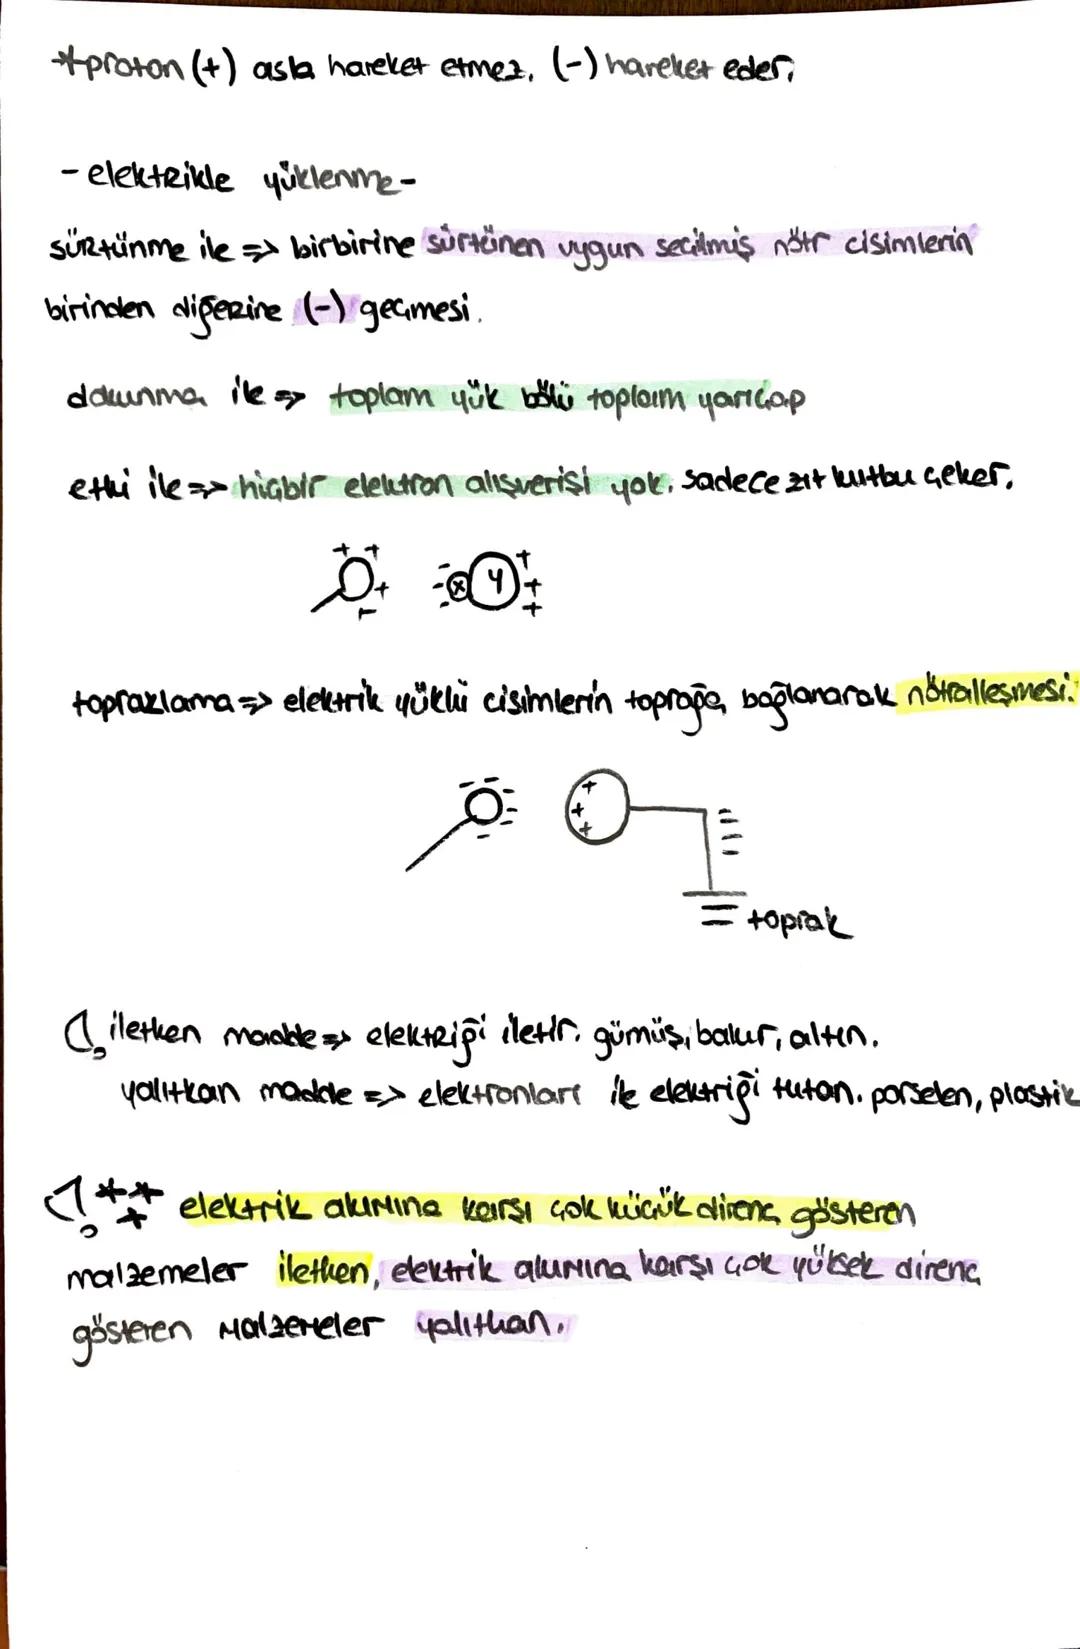 *proton (+) asla hareket etmez, (-) hareket eder.
- elektrikle yüklenme-
sürtünme ile => birbirine sürtünen uygun seçilmiş nötr cisimlerin
birinden diğerine (-) geçmesi.
dokunma ile => toplam yük bölü toplam yarıçap
etki ile => hiçbir elektron alışverişi yok. sadece zıt kutbu çeker.
+ + + - - - - x y + + +
topraklama => elektrik yüklü cisimlerin toprağa bağlanarak nötralleşmesi.
+ + +
toprak
iletken madde => elektriği iletir. gümüş, bakır, altın.
yalıtkan madde => elektronları ile elektriği tutan. porselen, plastik
*** elektrik akımına karşı çok küçük direnç gösteren
malzemeler iletken, elektrik akımına karşı çok yüksek direnç
gösteren malzemeler yalıtkan.